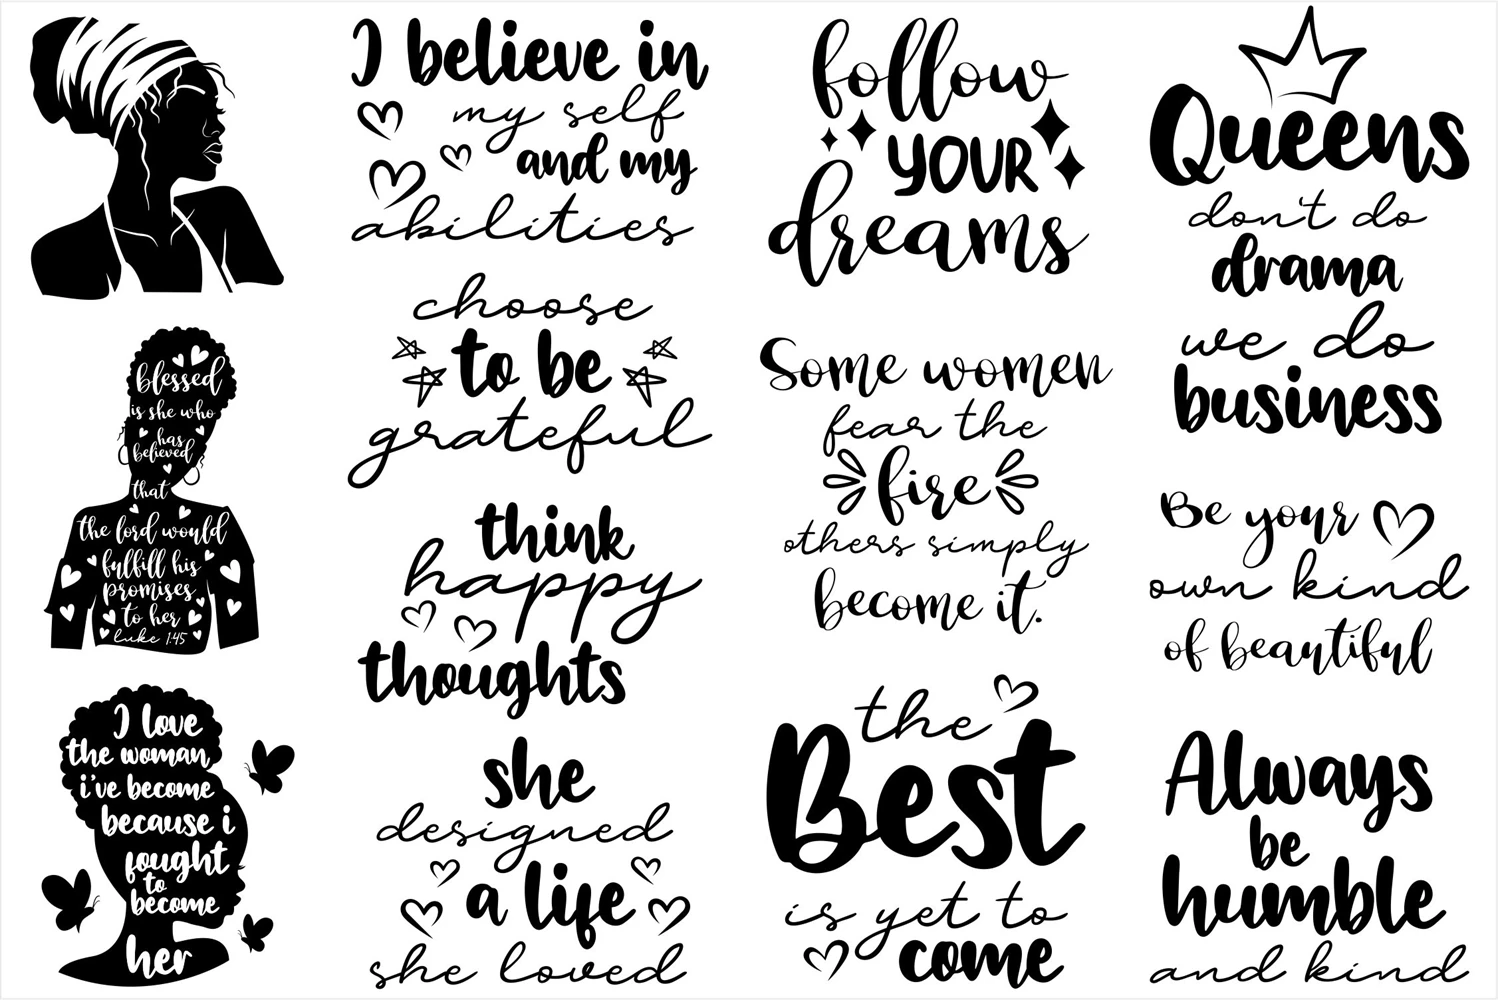 blessed
is she who
has
believed
that
the lord would
fulfill his
promises
to her
Luke 1:45
I love
the woman
i've become
because i
fought
to
become
her
I believe in
my self
and my
abilities
choose
to be
grateful
think
happy
thoughts
she
designed
a life
she loved
follow
YOUR
dreams
Some women
fear the
fire
others simply
become it.
the
Best
is yet to
come
Queens
don't do
drama
we do
business
Be your
own kind
of beautiful
Always
be
humble
and kind